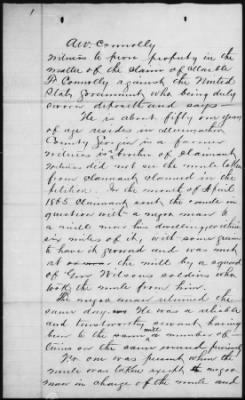 1
A.W. Connolly
witness to prove property in the
matter of the claim of
P. Connolly against the United
States Government who being duly
sworn deposeth and says—
He is about fifty one years
of age resides in
County Georgia is a farmer
witness is brother of claimant
witness did not see the mule taken
from claimant claimed in the
petition. In the month of April
1865 claimant sent the mule in
question with a negro man to
a mill near his dwelling or within
six miles of it, with some grain
to have it ground and was met
at the mill by a squad
of Genl Wilsons soldiers who
took the mule from him.
The negro man returned the
same day. He was a reliable
and trustworthy servant having
been to the same mill a number of
times on the same errand previously
No one was present when the
mule was taken except the negro
man in charge of the mule and